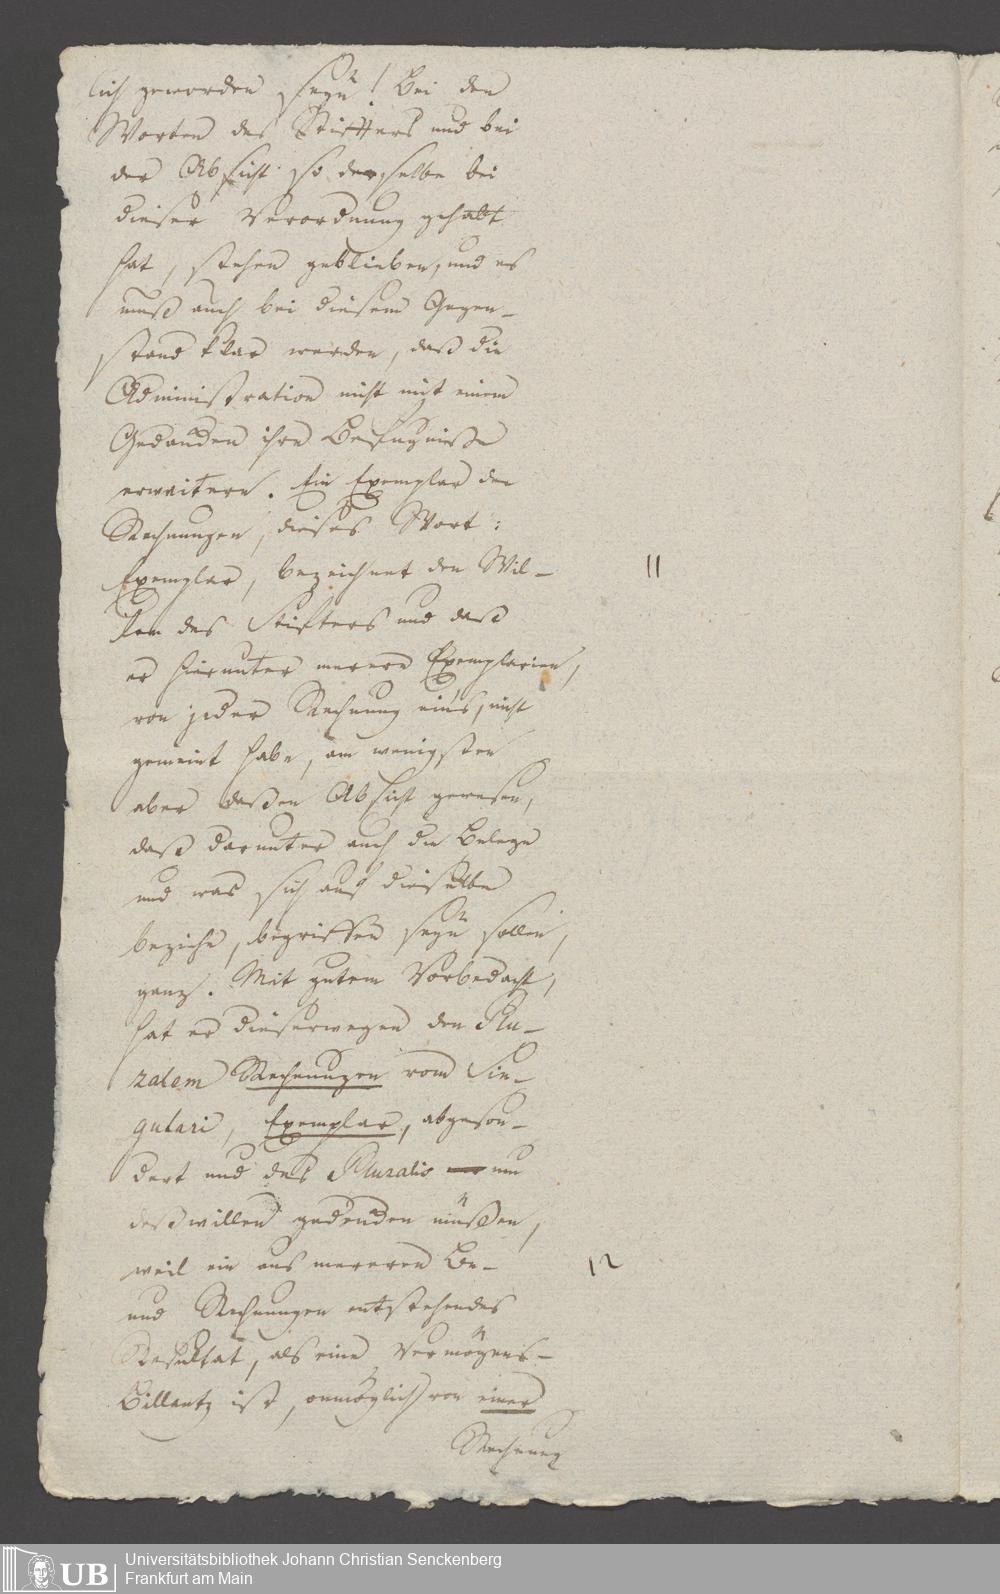 lich geworden seyn! Bei den
Worten des Stifters und bei
der Absicht so derselbe bei
dieser Verordnung gehabt
hat, stehen geblieben, und es
muß auch bei diesem Gegen-
stand klar werden, daß die
Administration nicht mit einem
Gedanken ihre Befugniße
erweitere. Ein Exemplar der
Rechnungen, dieses Wort:
Exemplar, bezeichnet den Wil-
len des Stifters und daß
er hierunter merere Exemplarien,
von jeder Rechnung eins, nicht
gemeint habe, am wenigsten
aber deßen Absicht gewesen,
daß darunter auch die Belege
und was sich auf dieselbe
beziehe, begriffen seyn sollen,
ganz. Mit gutem Vorbedacht,
hat er dieserwegen den Plu-
ralem Rechnungen vom Sin-
gulari, Exemplar, abgeson-
dert und des Pluralis um
deßwillen gedenken müßen,
weil ein aus mereren Be-
und Rechnungen entstehendes
Resultat, als eine Vermögens-
Billantz ist, onmöglich von einer
Rechnung
11
12
Universitätsbibliothek Johann Christian Senckenberg
Frankfurt am Main
UB